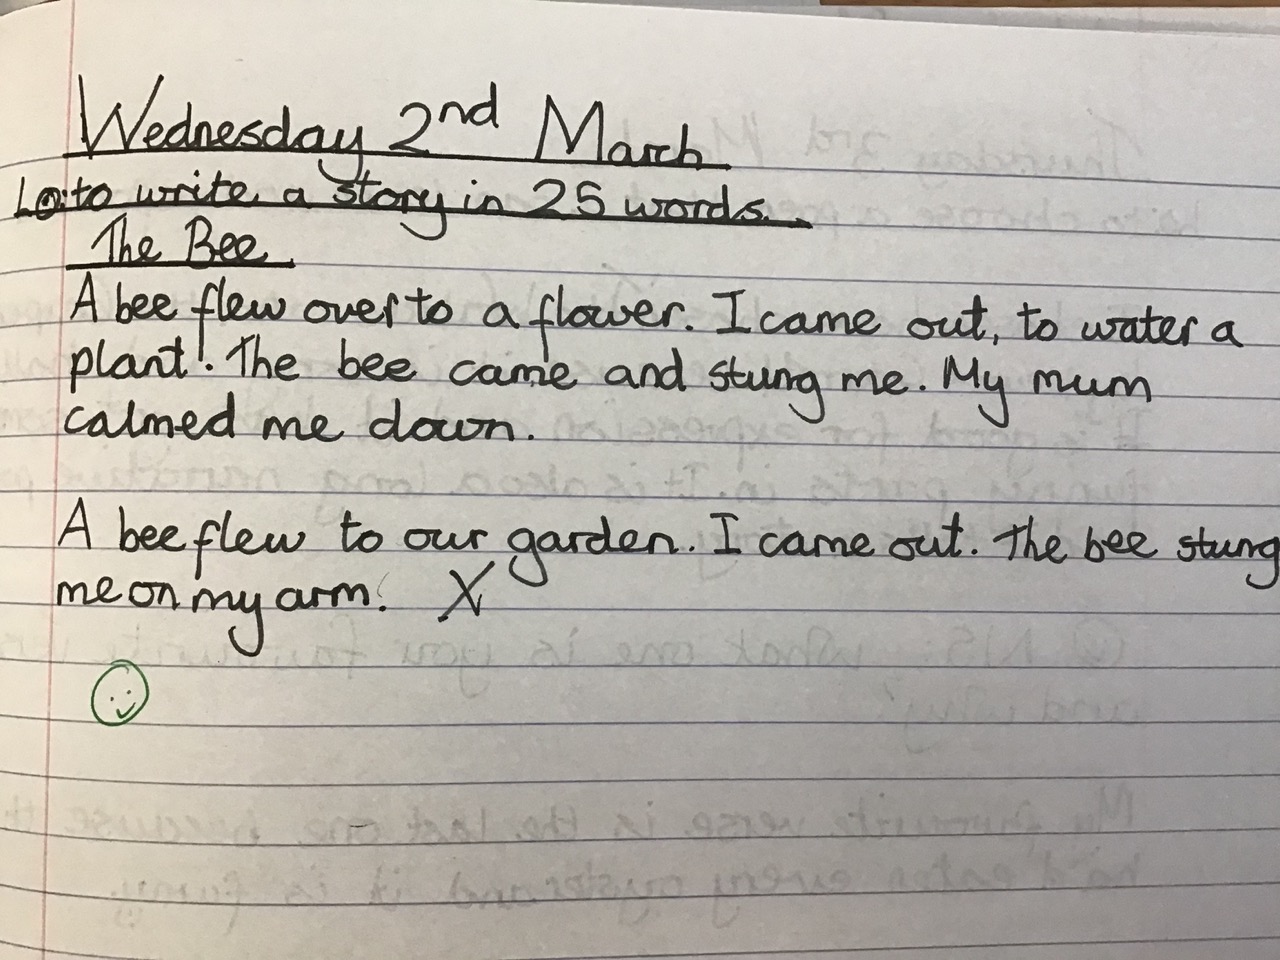 Wednesday 2nd March
Lo: to write a story in 25 words.
The Bee
A bee flew over to a flower. I came out, to water a
plant!. The bee came and stung me. My mum
calmed me down.
A bee flew to our garden. I came out. The bee stung
me on my arm. X